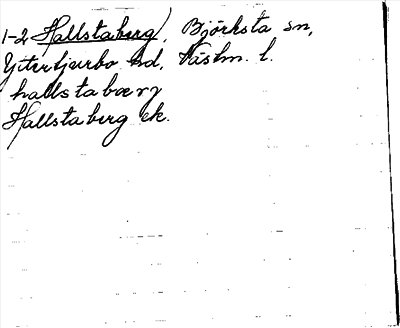 1-2 Hallstaberg, Björksta sn,
Ytertjurbo hd. Västm. l.
hallstabærj
Hallstaberg ek.